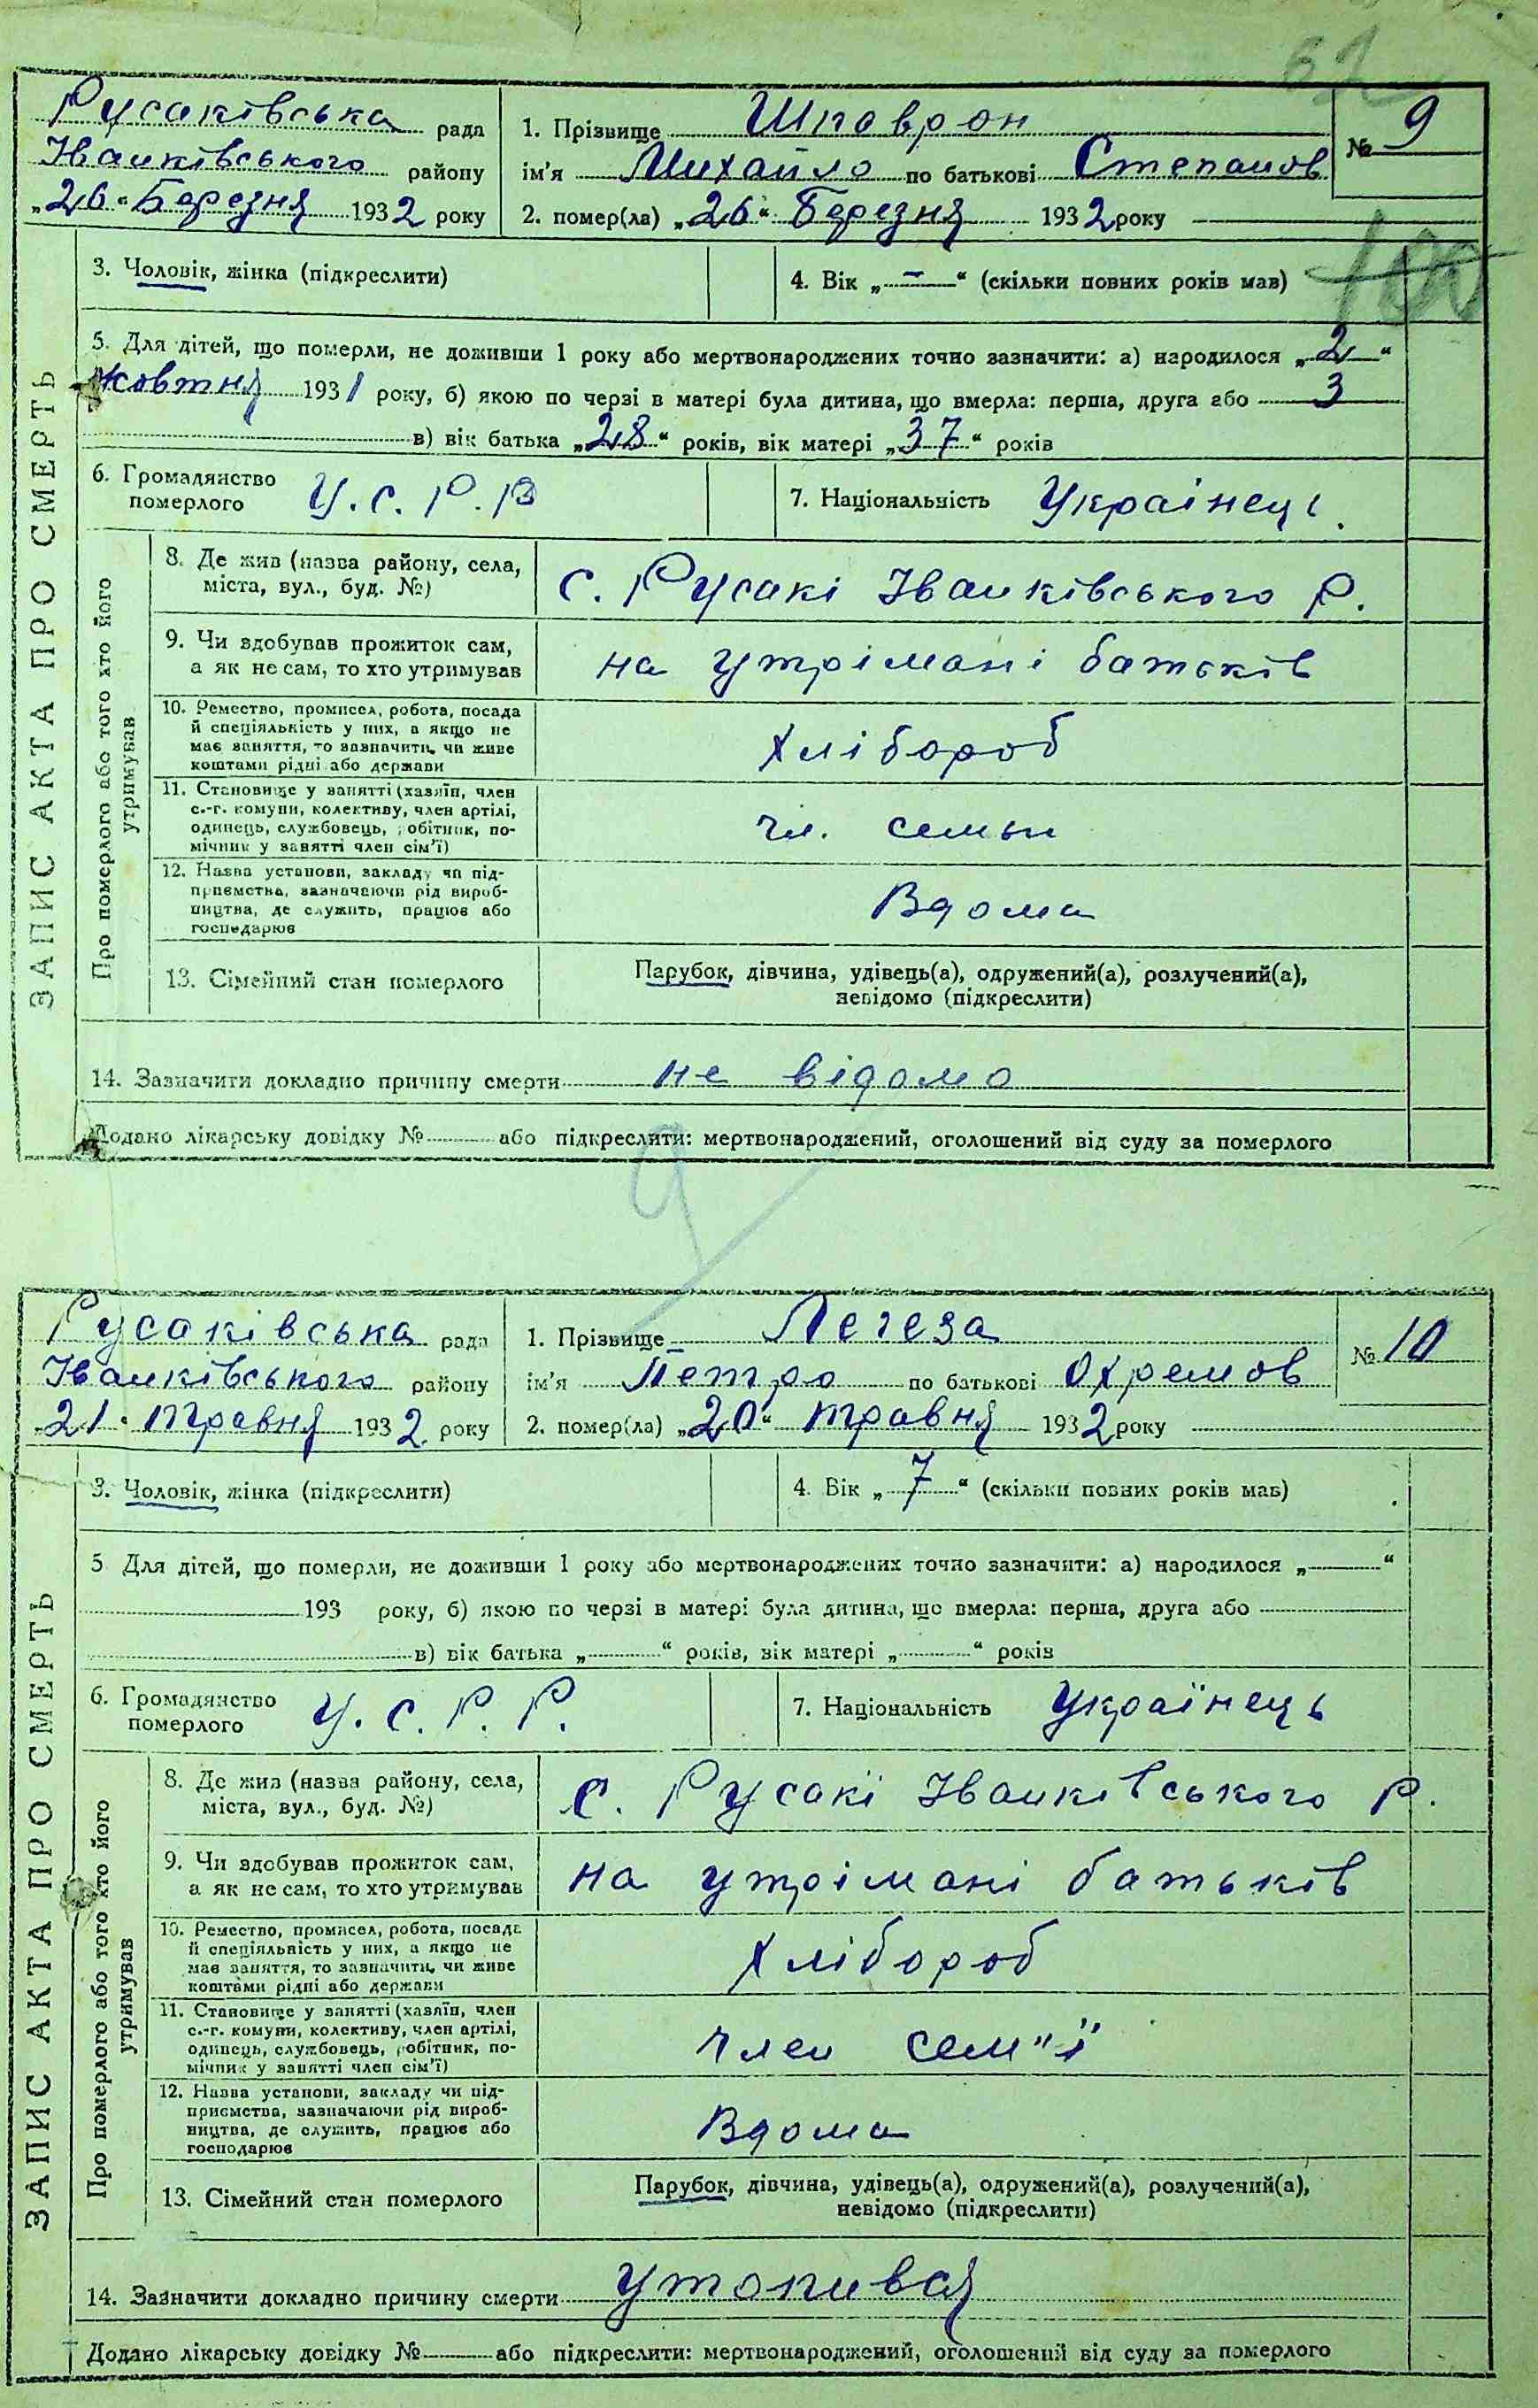 62
Русаківська рада
Іванківського району
„26“ Березня 1932 року
1. Прізвище Шповрон
ім'я Михайло по батькові Степанов
2. помер(ла) „26“ Березня 1932 року
№ 9
3. Чоловік, жінка (підкреслити)
4. Вік „—“ (скільки повних років мав)
5. Для дітей, що померли, не доживши 1 року або мертвонароджених точно зазначити: а) народилося „2“
жовтня 1931 року, б) якою по черзі в матері була дитина, що вмерла: перша, друга або 3
в) вік батька „28“ років, вік матері „37“ років
6. Громадянство
померлого У.С.Р.Р
7. Національність Українець.
ЗАПИС АКТА ПРО СМЕРТЬ
Про померлого або того хто його
утримував
8. Де жив (назва району, села,
міста, вул., буд. №)
с. Русакі Іванківського Р.
9. Чи здобував прожиток сам,
а як не сам, то хто утримував
на утрімані батьків
10. Ремество, промисел, робота, посада
й спеціяльність у них, а якщо не
має заняття, то зазначити, чи живе
коштами рідні або держави
Хлібороб
11. Становище у занятті (хазяїн, член
с.-г. комуни, колективу, член артілі,
одинець, службовець, робітник, по-
мічник у занятті член сім'ї)
чл. семьи
12. Назва установи, закладу чи під-
приємства, зазначаючи рід вироб-
ництва, де служить, працює або
господарює
Вдома
13. Сімейний стан померлого
Парубок, дівчина, удівець(а), одружений(а), розлучений(а),
невідомо (підкреслити)
14. Зазначити докладно причину смерти не відомо
Додано лікарську довідку № або підкреслити: мертвонароджений, оголошений від суду за померлого
9
Русаківська рада
Іванківського району
„21“ травня 1932 року
1. Прізвище Легеза
ім'я Петро по батькові Охремов
2. помер(ла) „20“ травня 1932 року
№ 10
3. Чоловік, жінка (підкреслити)
4. Вік „7“ (скільки повних років мав)
5 Для дітей, що померли, не доживши 1 року або мертвонароджених точно зазначити: а) народилося „ “
193 року, б) якою по черзі в матері була дитина, що вмерла: перша, друга або
в) вік батька „ “ років, вік матері „ “ років
6. Громадянство
померлого У.С.Р.Р.
7. Національність Українець
ЗАПИС АКТА ПРО СМЕРТЬ
Про померлого або того хто його
утримував
8. Де жив (назва району, села,
міста, вул., буд. №)
С. Русакі Іванківського Р.
9. Чи здобував прожиток сам,
а як не сам, то хто утримував
на утрімані батьків
10. Ремество, промисел, робота, посада
й спеціяльність у них, а якщо не
має заняття, то зазначити, чи живе
коштами рідні або держави
Хлібороб
11. Становище у занятті (хазяїн, член
с.-г. комуни, колективу, член артілі,
одинець, службовець, робітник, по-
мічник у занятті член сім'ї)
член сем"ї
12. Назва установи, закладу чи під-
приємства, зазначаючи рід вироб-
ництва, де служить, працює або
господарює
Вдома
13. Сімейний стан померлого
Парубок, дівчина, удівець(а), одружений(а), розлучений(а),
невідомо (підкреслити)
14. Зазначити докладно причину смерти утопився
Додано лікарську довідку № або підкреслити: мертвонароджений, оголошений від суду за померлого